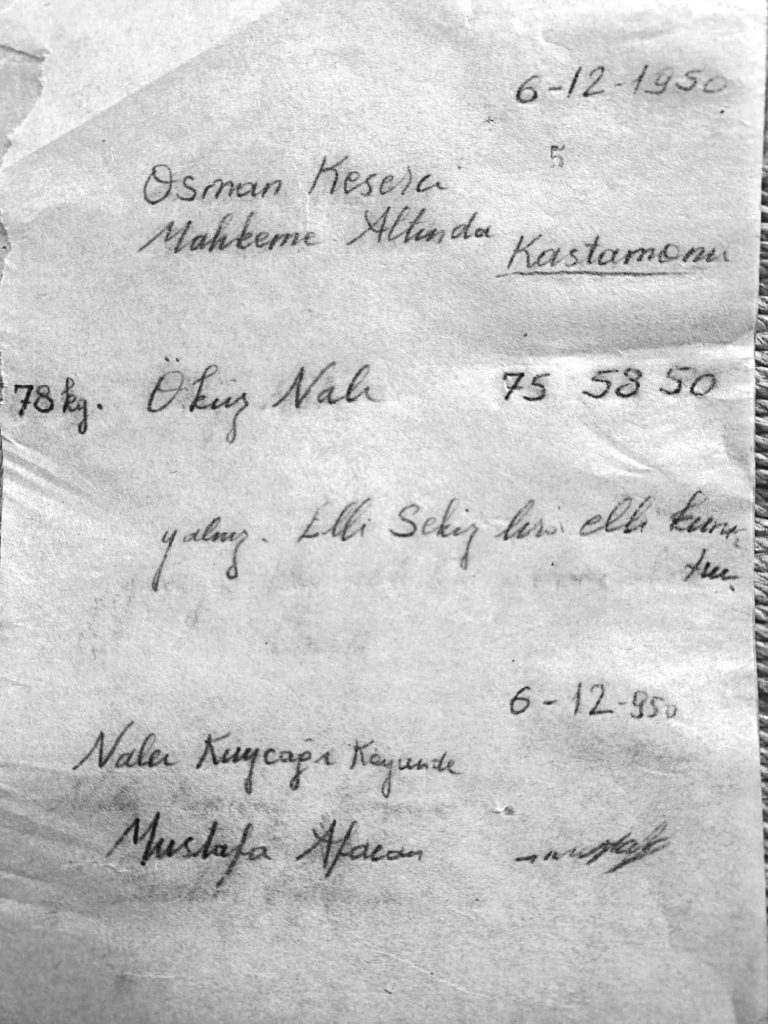 6-12-1950
5
Osman Keserci
Mahkeme Altında
Kastamonu
78 kg. Öküz Nalı 75 58 50
yalnız. Elli Sekiz lira elli kuruş-
tur.
6-12-950
Nalcı Kuycağı Köyünde
Mustafa Afacan